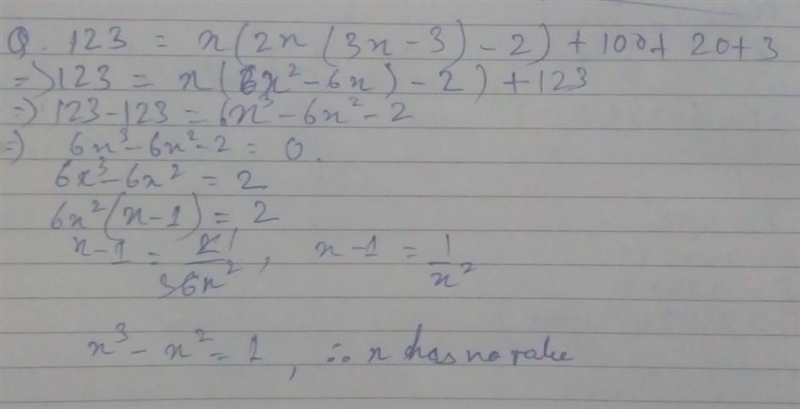 Q. 123 = x(2x(3x-3)-2)+100+20+3
=> 123 = x(6x²-6x)-2)+123
=> 123-123 = 6x³-6x²-2
=> 6x³-6x²-2 = 0.
6x³-6x² = 2
6x²(x-1) = 2
x-1 = 21/36x², x-1 = 1/x²
x³-x² = 1, ∴ x has no